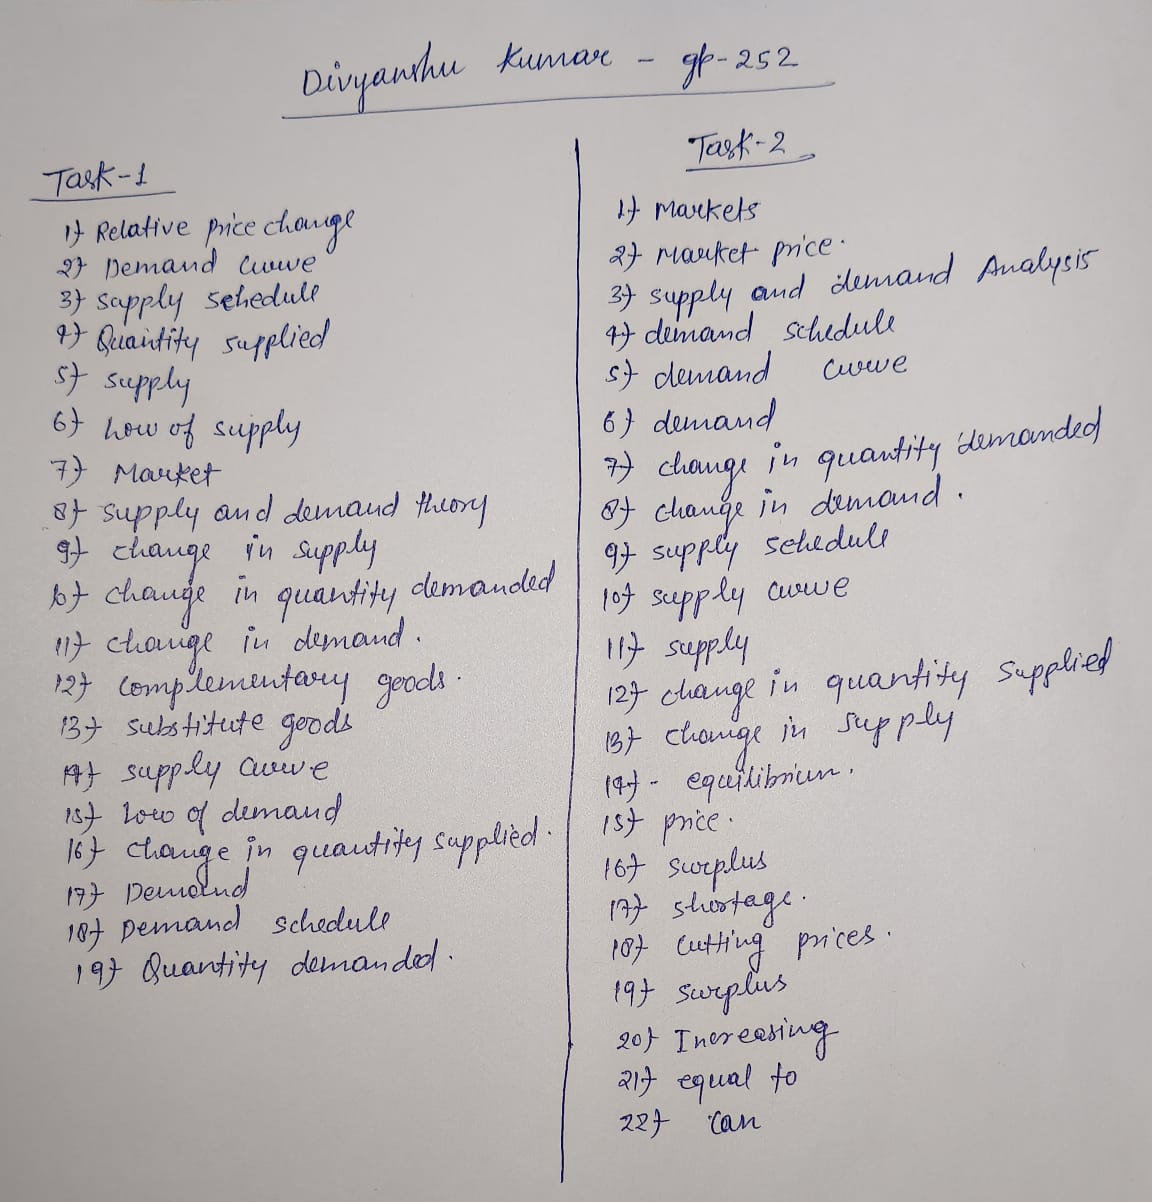 Divyanshu Kumar - gp-252
Task-1
1) Relative price change
2) Demand Curve
3) Supply schedule
4) Quantity supplied
5) supply
6) Low of supply
7) Market
8) supply and demand theory
9) change in supply
10) change in quantity demanded
11) change in demand.
12) complementary goods.
13) substitute goods
14) supply curve
15) Low of demand
16) change in quantity supplied.
17) Demand
18) Demand schedule
19) Quantity demanded.
Task-2
1) Markets
2) Market price.
3) supply and demand Analysis
4) demand schedule
5) demand curve
6) demand
7) change in quantity demanded
8) change in demand.
9) supply schedule
10) supply curve
11) supply
12) change in quantity supplied
13) change in supply
14) - equilibrium.
15) price.
16) surplus
17) shortage.
18) Cutting prices.
19) surplus
20) Increasing
21) equal to
22) can